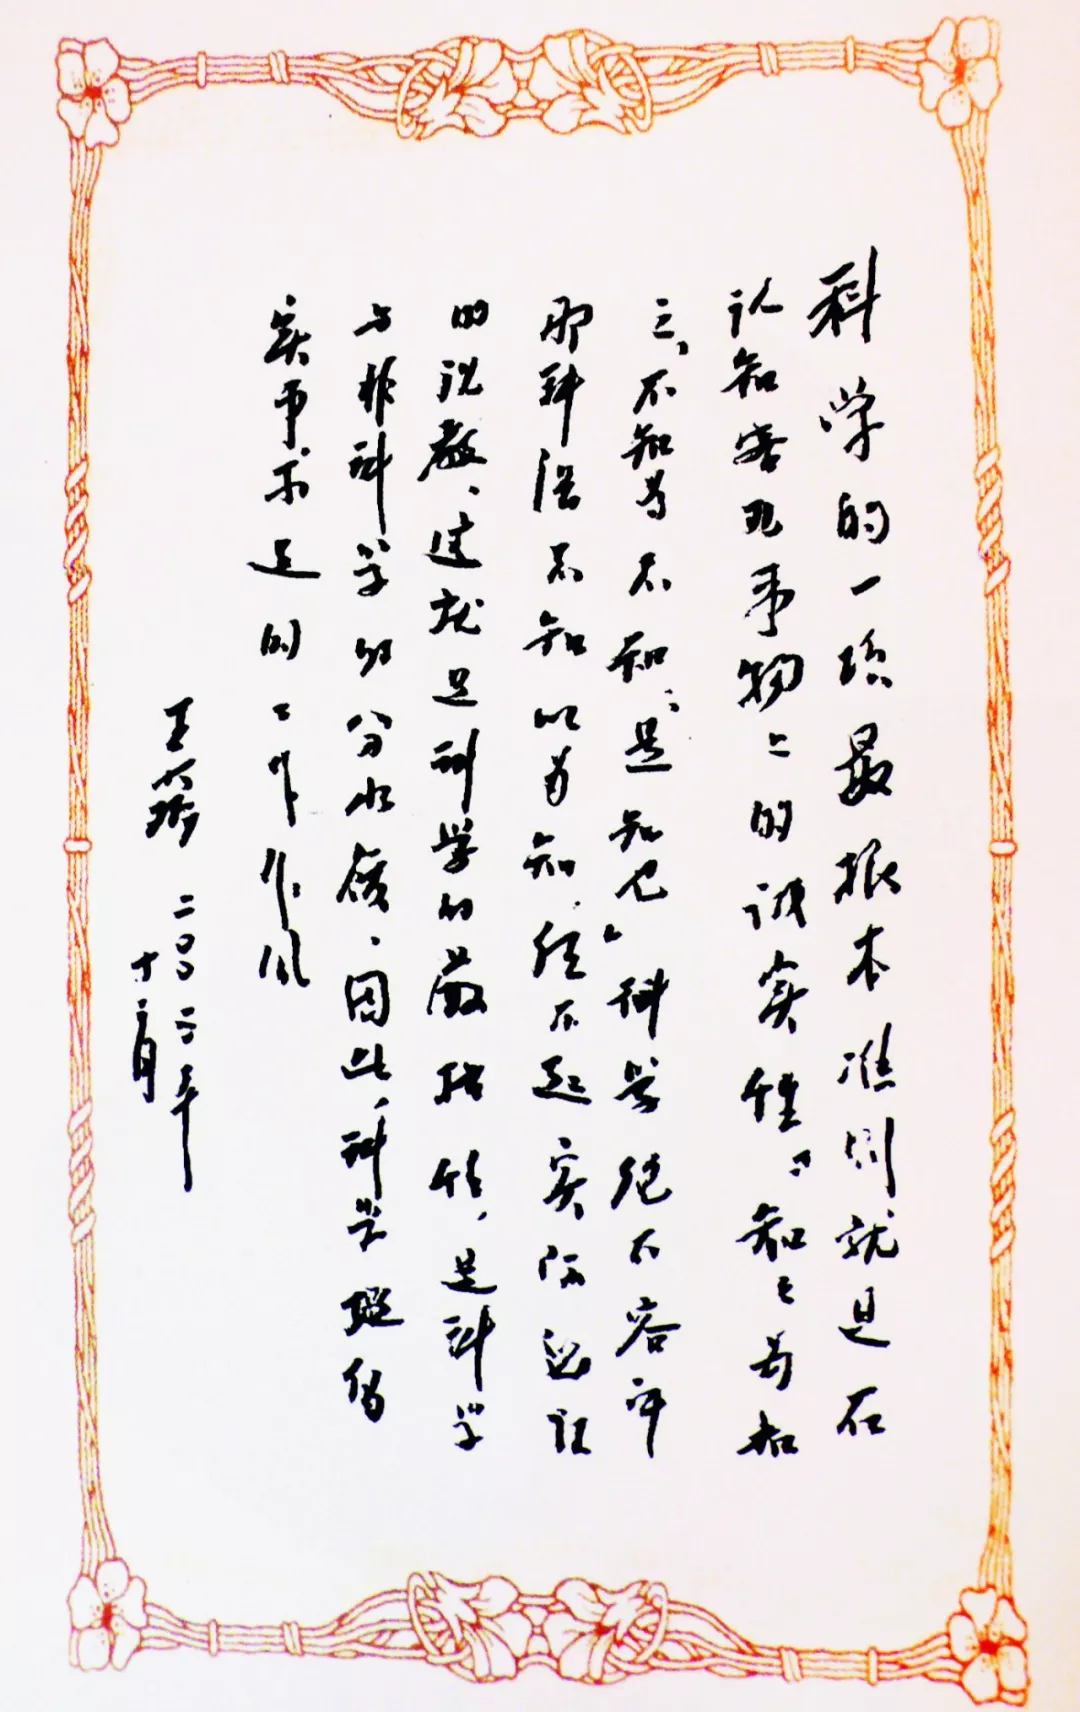 科学的一项最根本准则就是在
认知客观事物上的诚实性。"知之为知
之，不知为不知，是知也"科学绝不容许
那种强不知以为知，经不起实际验证
的说教，这就是科学的严格性，是科学
与非科学的分水岭，因此，科学提倡
实事求是的工作作风
王
二〇〇二年
十二月